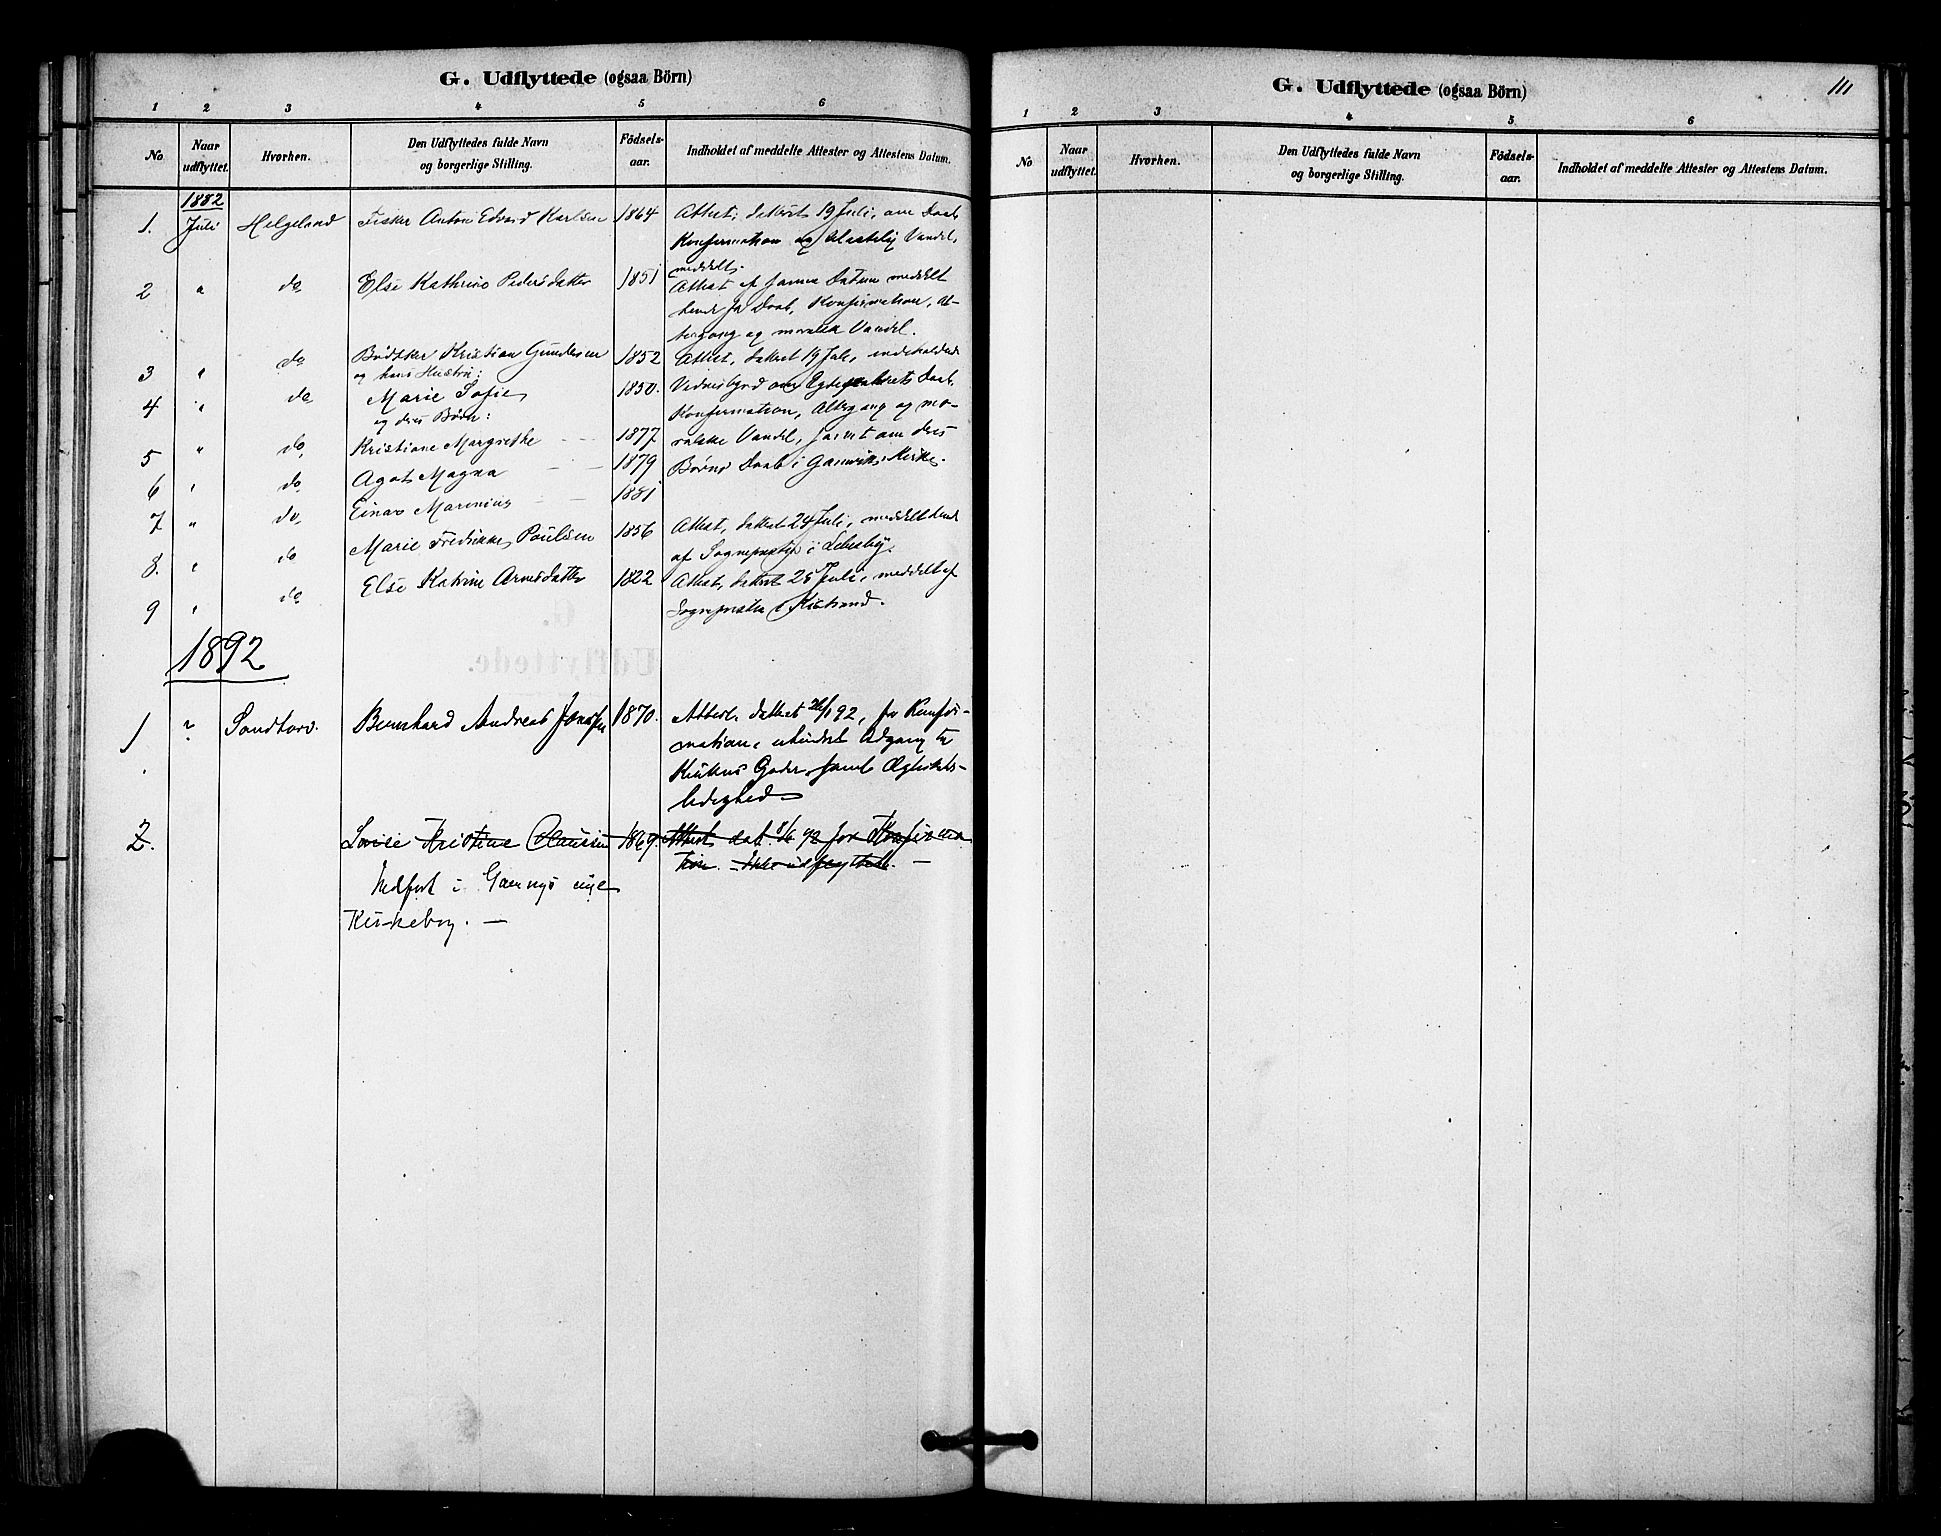 G. Udflyttede (ogsaa Börn)
1 2 3 4 5 6
No. Naar udflyttet. Hvorhen. Den Udflyttedes fulde Navn og borgerlige Stilling. Födselsaar. Indholdet af meddelte Attester og Attestens Datum.
1882
1. Juli Helgeland Fisker Anton Edvard Karlsen 1864 Attest, dateret 19 Juli, om Daab,
Konfirmation og Vandel,
meddelt.
2 " do Else Kathrine Pedersdatter 1851 Attest af samme Datum meddelt
hende for Daab, Konfirmation, Al-
tergang og moralsk Vandel.
3 " do Bødtker Kristian Gundersen 1852 Attest, dateret 19 Juli, indeholdende
og hans Hustru:
4 " do Marie Sofie 1850. Vidnesbyrd om Egteparrets Daab,
og deres Børn: Konfirmation, Altergang og mo-
5 " do Kristiane Margrethe 1877 ralske Vandel, samt om deres
6 " do Agot Magna 1879 Børns Daab i Gamviks Kirke.
7 " do Einar Marenius 1881
8. " do Marie Fredrikke Poulsen 1856 Attest, dateret 24 Juli, meddelt hende
af Sognepresten i Lebesby.
9 " do Else Katrine Arnesdatter 1822 Attest, dateret 25 Juli, meddelt af
Sognepresten i Kistrand.
1892
1 " Sandtorv. Bernhard Andreas Jonsen 1870. Attest dateret 26/1 92, for Konfir-
mation, uhindret Adgang til
Kirkens Goder samt Ægteskabs-
ledighed
2. Lovise Kristine Clausen 1869. Attest dat. 1/6 92 for Konfirma
tion. - Ikke udflyttede. -
Indført i Gamviks nye
Kirkebog. -
G. Udflyttede (ogsaa Börn)
111
1 2 3 4 5 6
No Naar udflyttet. Hvorhen. Den Udflyttedes fulde Navn og borgerlige Stilling. Födselsaar. Indholdet af meddelte Attester og Attestens Datum.